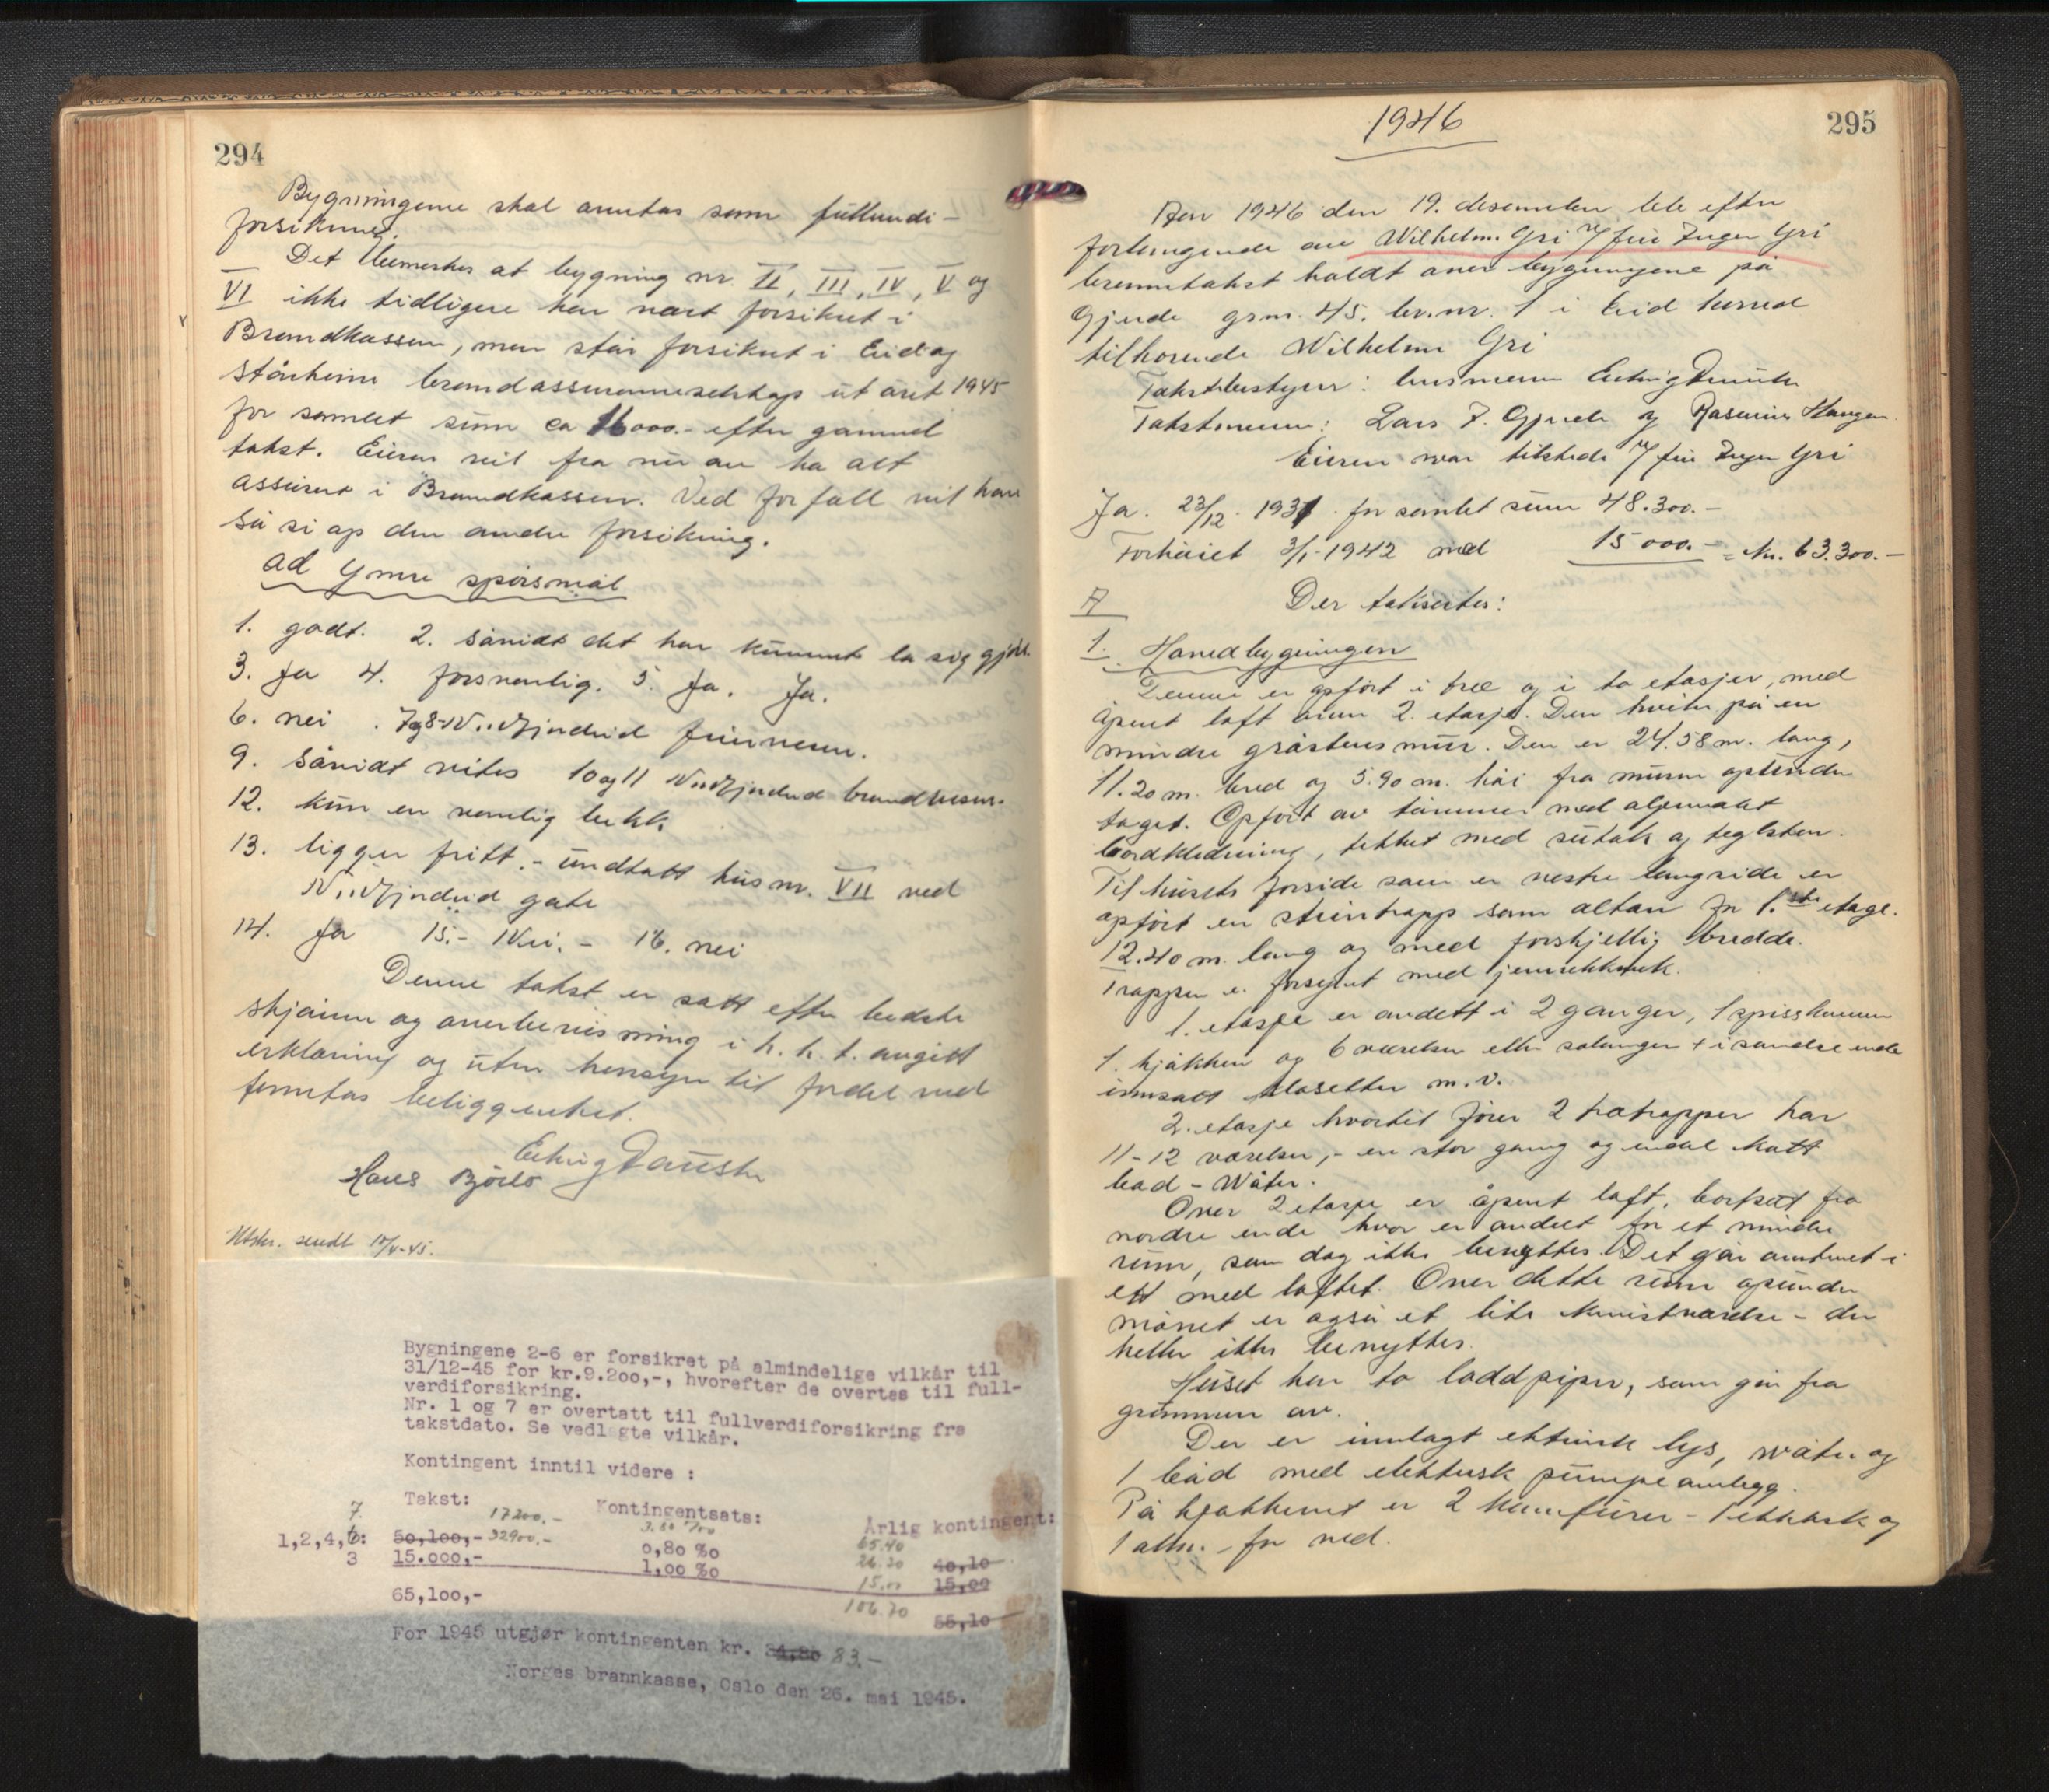 294
Bygningene skal anntas som fullverdi-
forsikring.
Det bemerkes at bygning nr II, III, IV, V og
VI ikke tidligere har vært forsikret i
Brandkassen, men står forsikret i Eid og
Stårheim brandassuranseselskap ut året 1945
for samlet sum ca 16000.- efter gammel
takst. Eieren vil fra nu av ha alt
assurert i Brandkassen. Ved forfall vil han
så si op den andre forsikring.
ad Ymse spørsmål
1. godt. 2. såvidt det har kunnet la sig gjøre.
3. Ja 4. forsvarlig. 5. Ja. Ja.
6. nei. 7 og 8 - N...fjordeid
9. såvidt vites 10 og 11 N...fjordeid
12. kun en vanlig bekk
13. ligger fritt. - undtatt hus nr. VII ved
N...fjordeid gate
14. Ja 15. - Nei. - 16. nei
Denne takst er satt efter bedste
skjønn og overbevisning i h. h. t. avgitt
erklæring og uten hensyn til fordel ved
tomtas beliggenhet.
Hans Bjørlo
Utskr. sendt
Bygningene 2-6 er forsikret på almindelige vilkår til
31/12-45 for kr.9.200,-, hvorefter de overtas til full-
verdiforsikring.
Nr. 1 og 7 er overtatt til fullverdiforsikring fra
takstdato. Se vedlagte vilkår.
Kontingent inntil videre :
Takst: Kontingentsats: Årlig kontingent:
7. 17200.- 65.40
1,2,4,6: 50,100,- 32900,- 0,80 ‰ 26.20 40,10
3 15.000,- 1,00 ‰ 15.00 15,00
65,100,- 106.70 55,10
For 1945 utgjør kontingenten kr. 83.-
Norges brannkasse, Oslo den 26. mai 1945.
1946
295
Aar 1946 den 19. desember ble efter
forlangende av Wilhelm Gri v/ fru Inger Gri
branntakst holdt over bygningene på
Gjerde grn. 45. br.nr. 1 i Eid herred
tilhørende Wilhelm Gri
Takstbestyrer: lensmann
Takstmenn: Lars J. Gjerde og Rasmus Haugen.
Eieren var tilstede v/ fru Inger Gri
Ja. 23/12. 1931. for samlet sum 48.300.-
Forhøiet 3/1-1942 med 15 000.- = kr. 63.300.-
A Der takseertes:
1. Hovedbygningen
Denne er opført i tre og i to etasjer, med
åpent loft over 2. etasje. Den hviler på en
mindre gråstensmur. Den er 24.58 m. lang,
11.20 m. bred og 5.90 m. høi fra muren optil under
taget. Opført av tømmer med alminnelig
bordkledning, tekket med sutak og teglsten.
Til husets forside som er vestre langside er
opført en steintrapp som altan for 1.ste etage.
12.40 m. lang og med forskjellig bredde.
Trappen er forsynet med jernrekkverk.
1. etasje er avdelt i 2 ganger, 1 spisskammer
1. kjøkken og 6 værelser eller salonger + i søndre ende
innsatt klosetter m.v.
2. etasje hvortil fører 2 tretrapper har
11-12 værelser, - en stor gang og endel kott
bad - Water.
Over 2 etasje er åpent loft, bortsett fra
nordre ende hvor er avdelt for et mindre
rum, som dog ikke benyttes. Det går omtrent i
ett med loftet. Over dette rum op under
mønet er også et lite kvistværelse - der
heller ikke benyttes.
Huset har to loddpiper, som går fra
grunnen av.
Der er innlagt elektrisk lys, water og
1 bad med elektrisk pumpeanlegg.
På kjøkkenet er 2 komfyrer - 1 elektrisk og
1 alm. - for ved.